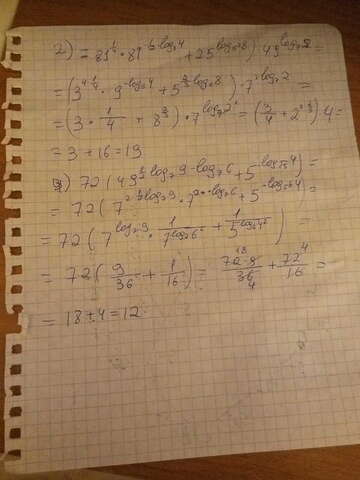 2) = 81^{1/4} · 81^{-1/2 log_9 4} + 25^{log_{125} 8}) · 49^{log_7 2} =
= (3^{4·1/4} · 9^{-log_9 4} + 5^{2/3 log_5 8}) · 7^{2 log_7 2} =
= (3 · 1/4 + 8^{2/3}) · 7^{log_7 2^2} = (3/4 + 2^{3·2/3}) · 4 =
= 3 + 16 = 19
72 (49^{1/2 log_7 9 - log_7 6} + 5^{-log_{√5} 4}) =
= 72 (7^{2·1/2 log_7 9} · 7^{-2·log_7 6} + 5^{-2log_5 4}) =
= 72 (7^{log_7 9} · 1/7^{log_7 6^2} + 1/5^{log_5 4^2}) =
= 72 (9/36 + 1/16) = 72·9/36 + 72/16 =
= 18 + 4 = 12